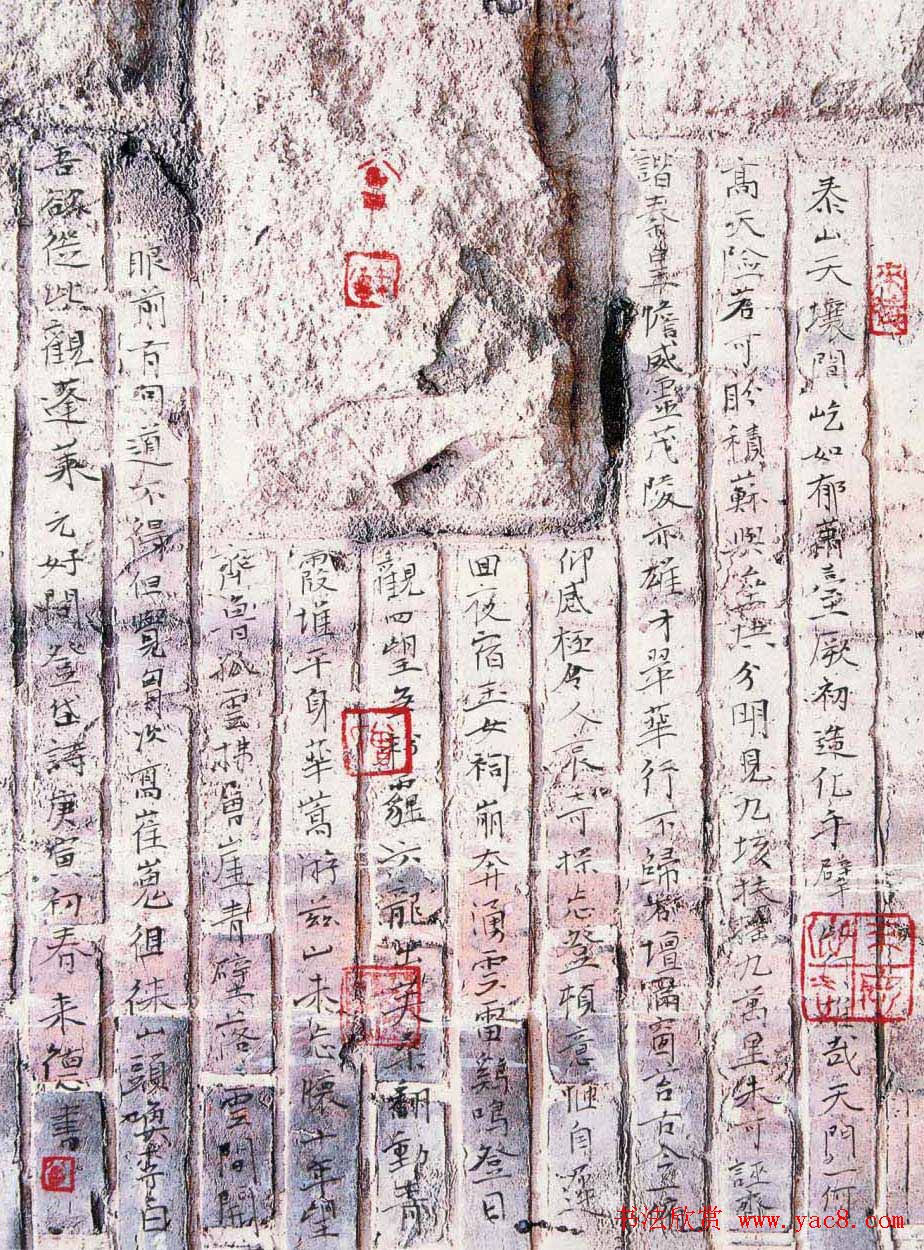 泰山天壤間屹如郁蕭臺厥初造化手擘雄哉天門一何
高天險若可盼積蘇與分明見九垓扶摇九萬里殊可誣齊
諧秦皇憺威靈茂陵亦雄才翠華行不歸壇滿古今
仰感極令人哀奇探忘登頓意愜自遲
回夜宿玉女祠崩奔湧雲雷鷄鳴登日
觀四望霾六龍出翻動青
霞堆平身華嵩游兹山未忘懷十年望
齊魯孤雲拂層崖青壁落雲間開
眼前有句道不得但覺胃次高崔嵬徂徠山頭喚李白
吾欲從此觀蓬萊元好問登岱詩庚寅初春未德書
书法欣赏 www.yac8.com